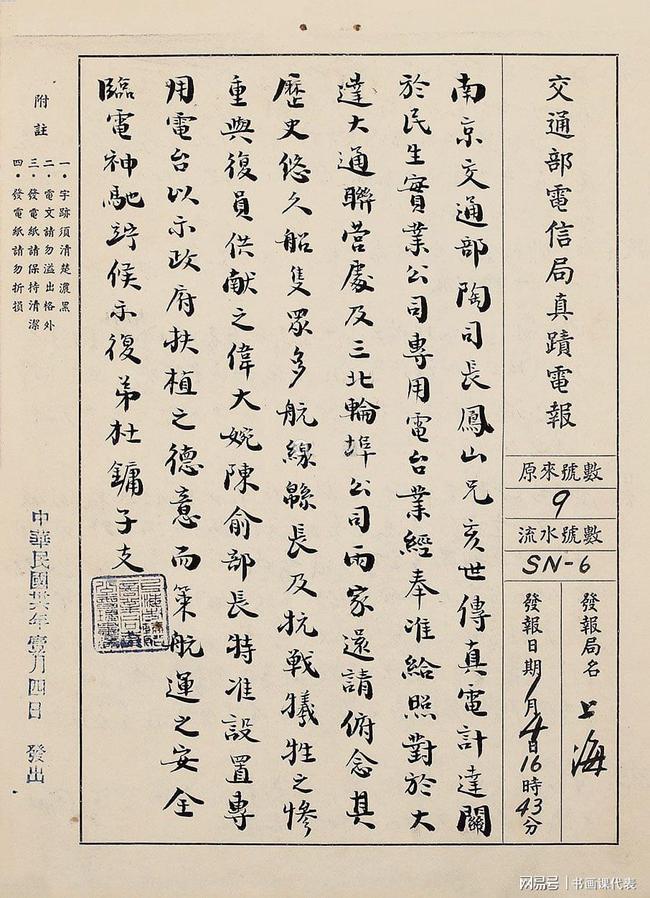 交通部電信局真蹟電報
原來號數
9
流水號數
SN-6
發報局名 上海
發報日期 1月4日16時43分
南京交通部陶司長鳳山兄亥世傳真電計達關
於民生實業公司專用電台業經奉准給照對於大
達大通聯營處及三北輪埠公司兩家還請俯念其
歷史悠久船隻眾多航線綿長及抗戰犧牲之慘
重與復員供献之偉大婉陳俞部長特准設置專
用電台以示政府扶植之德意而策航運之安全
臨電神馳竚候示復弟杜鏞子支
附註
一•字跡須清楚濃黑
二•電文請勿溢出格外
三•發電紙請保持清潔
四•發電紙請勿折損
中華民國卅六年壹月四日 發出
网易号 | 书画课代表